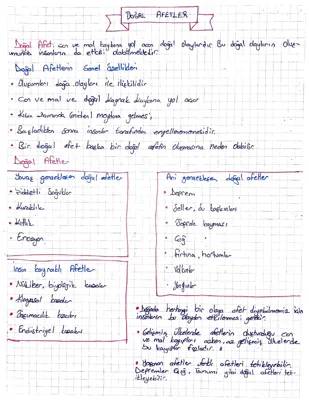 DOĞAL AFETLER
Doğal Afet: can ve mal kaybına yol açan doğal olaylardır. Bu doğal olayların oluş-
umunda insanların da etkisi olabilmektedir.
Doğal Afetlerin Genel Özellikleri
• Oluşumları doğa olayları ile ilişkilidir
• Can ve mal ve doğal kaynak kaybına yol açar
• Kısa zamanda meydana gelmesi,
• Başladıktan sonra insanlar tarafından engellenememesidir.
• Bir doğal afet başka bir doğal afetin oluşmasına neden olabilir.
Doğal Afetler
Yavaş gerçekleşen doğal afetler
• Şiddetli Soğuklar
• Kuraklık
• Kıtlık
• Erozyon
Ani gerçekleşen doğal afetler
• Deprem
• Seller, su baskınları
• Toprak kayması
• Çığ
• Fırtına, hortumlar
• Volkanlar
• Yangınlar
İnsan kaynaklı Afetler
• Nükleer, biyolojik kazalar
• Kimyasal kazalar
• Taşımacılık kazaları
• Endüstriyel kazalar
• Doğada herhangi bir olaya afet diyebilmemiz için
insanların bu olaydan etkilenmesi gerekir.
• Gelişmiş ülkelerde afetlerin oluşturduğu can
ve mal kayıpları azken, az gelişmiş ülkelerde
bu kayıplar fazladır.
• Yaşanan afetler farklı afetleri tetikleyebilir.
Depremler Çığ, Tsunami gibi doğal afetleri tet-
ikleyebilir.